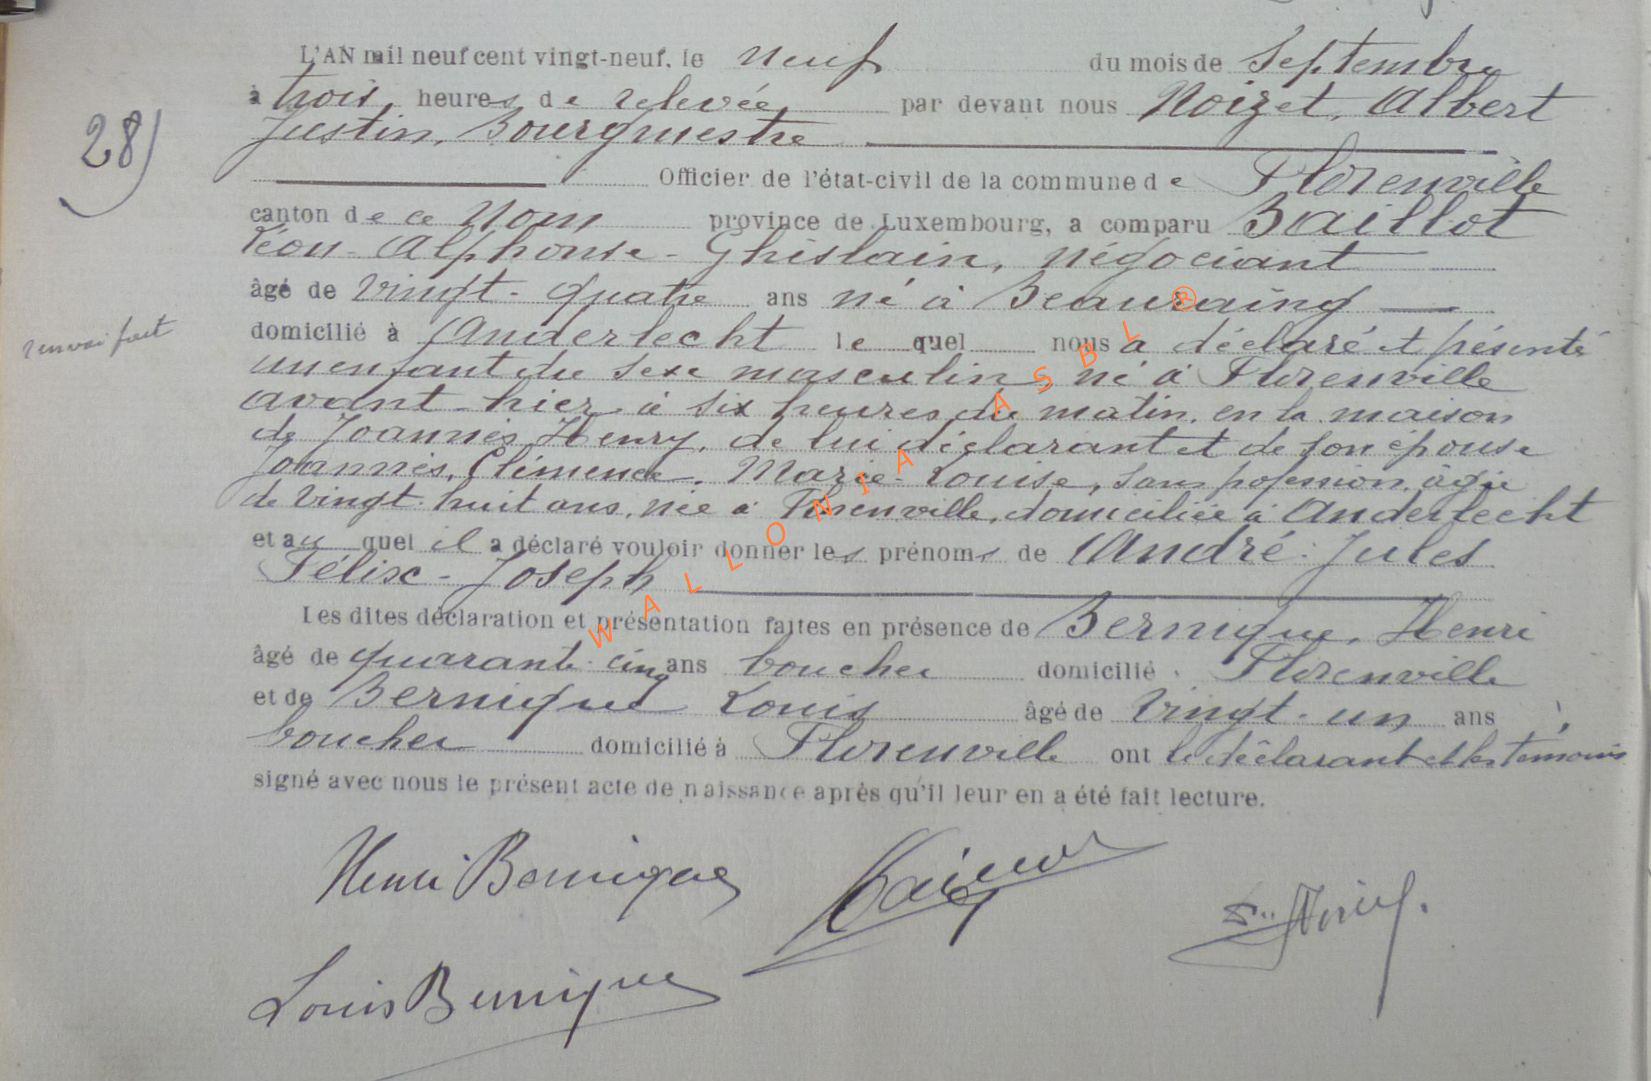 L'AN mil neuf cent vingt-neuf, le neuf du mois de Septembre
à trois heures de relevée, par devant nous Noizet, Albert
Justin, Bourgmestre
28)
Officier de l'état-civil de la commune de Florenville
canton de ce Nom province de Luxembourg, a comparu Baillot
Léon-Alphonse-Ghislain, négociant
âgé de vingt-quatre ans né à Beauraing
domicilié à Anderlecht le quel nous a déclaré et présenté
renvoi fait
un enfant du sexe masculin, né à Florenville
avant-hier à six heures du matin, en la maison
de Joannès, Henry, de lui déclarant et de son épouse
Joannès, Clémence, Marie-Louise, sans profession, âgée
de vingt-huit ans, née à Florenville, domiciliée à Anderlecht
et au quel il a déclaré vouloir donner les prénoms de André-Jules
Félix-Joseph
Les dites déclaration et présentation faites en présence de Bernique, Henri
âgé de quarante-cinq ans boucher domicilié à Florenville
et de Bernique Louis âgé de vingt-un ans
boucher domicilié à Florenville ont le déclarant et les témoins
signé avec nous le présent acte de naissance après qu'il leur en a été fait lecture.
Henri Bernique
Louis Bernique
WALLONIA ASBL ®